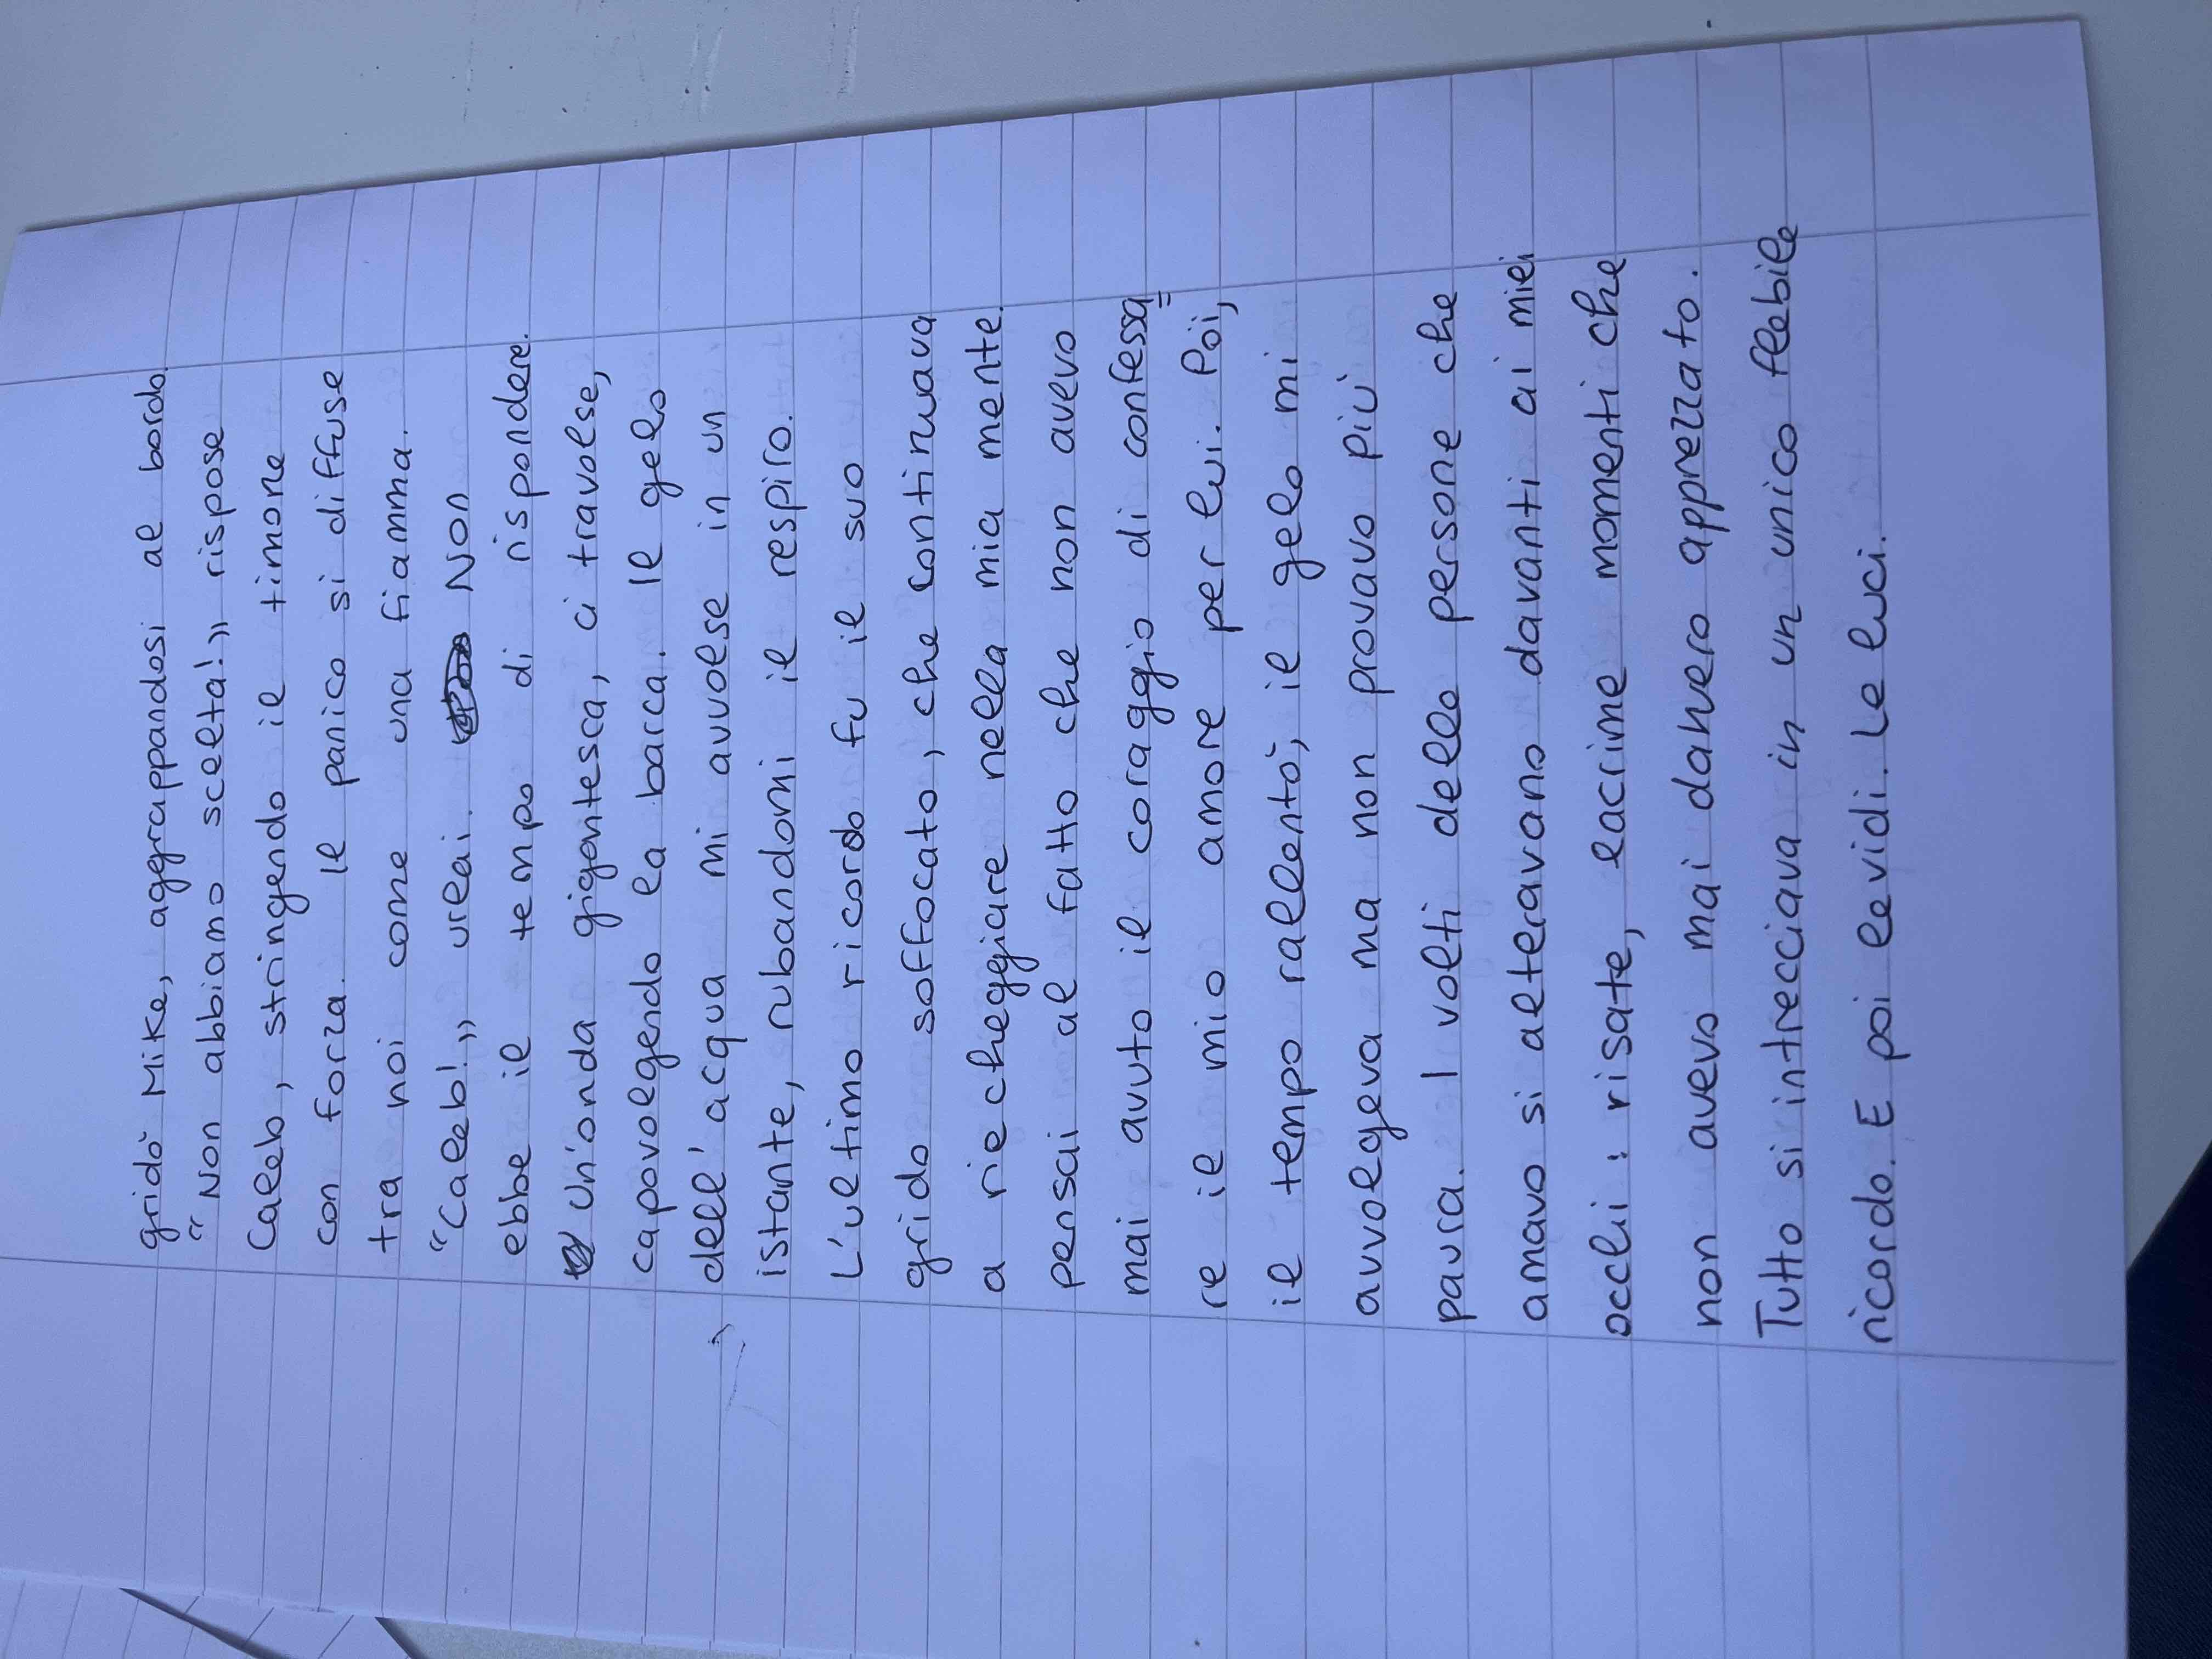 gridò Mike, aggrappandosi al bordo.
“Non abbiamo scelta!” rispose
Caleb, stringendo il timone
con forza. Il panico si diffuse
tra noi come una fiamma.
“Caleb!” urlai. Non
ebbe il tempo di rispondere.
Un'onda gigantesca, ci travolse,
capovolgendo la barca. Il gelo
dell'acqua mi avvolse in un
istante, rubandomi il respiro.
L'ultimo ricordo fu il suo
grido soffocato, che continuava
a riecheggiare nella mia mente.
pensai al fatto che non avevo
mai avuto il coraggio di confessa=
re il mio amore per lui. Poi,
il tempo rallentò, il gelo mi
avvolgeva ma non provavo più
paura. I volti delle persone che
amavo si alteravano davanti ai miei
occhi: risate, lacrime momenti che
non avevo mai davvero apprezzato.
Tutto si intrecciava in un unico flebile
ricordo. E poi le vidi. Le luci.